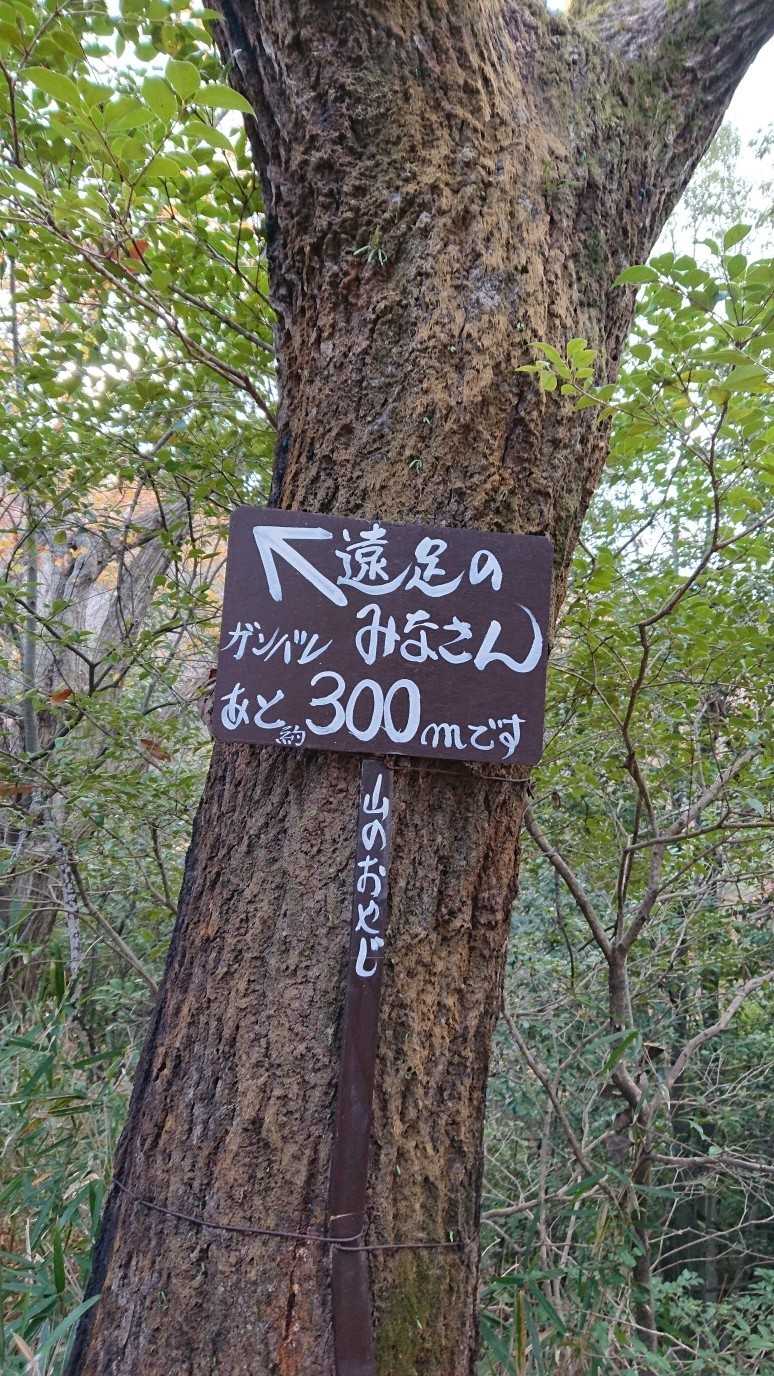 遠足の
ガンバレ みなさん
あと約300mです
山のおやじ